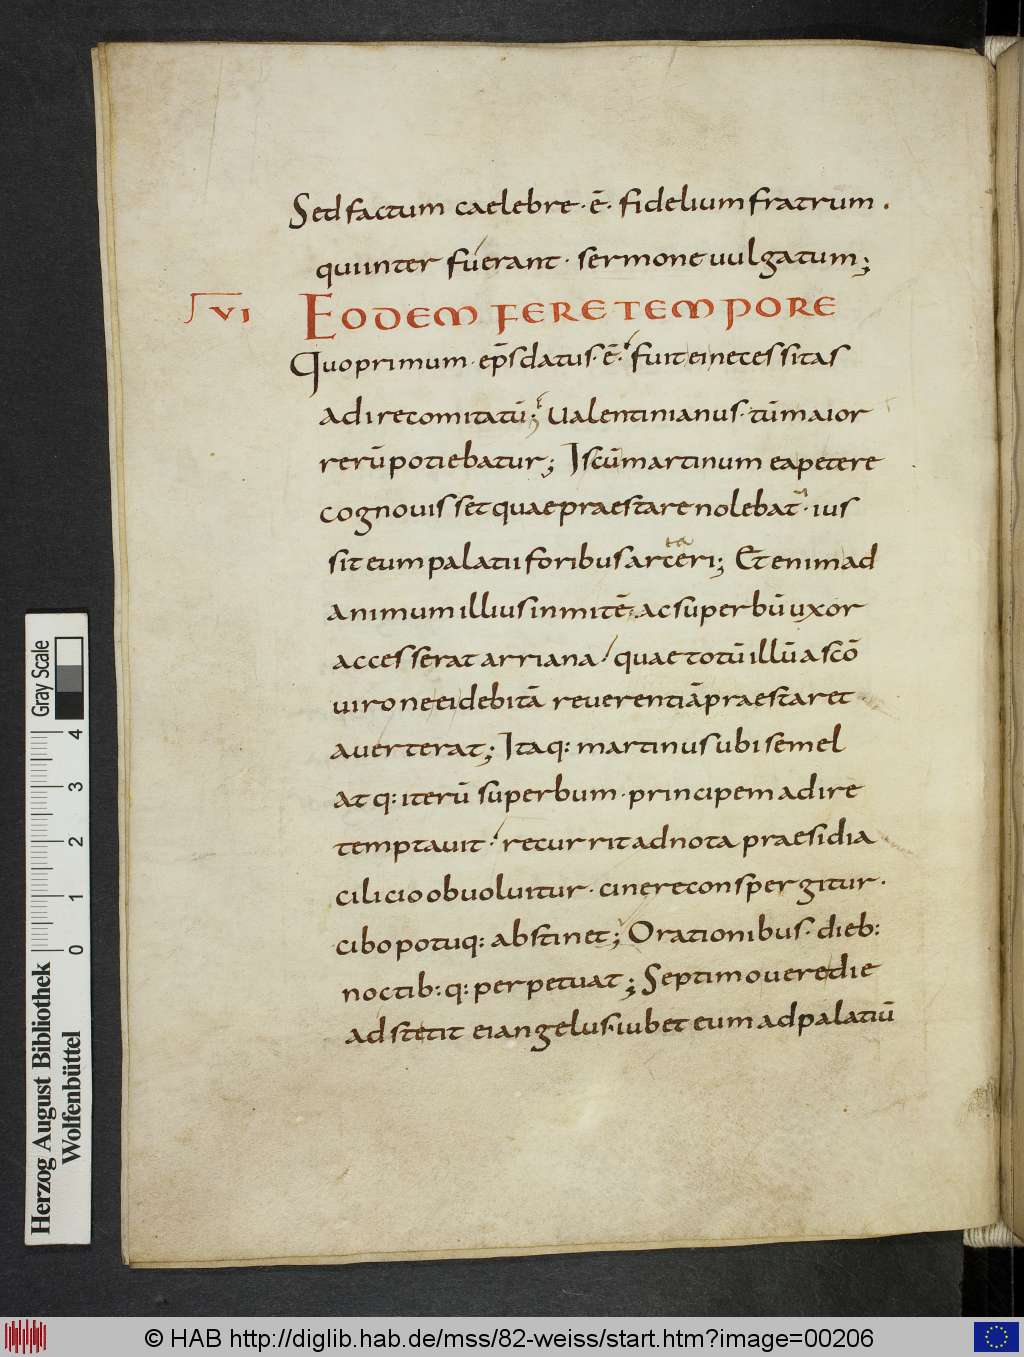 Sed factum caelebre · ē · fidelium fratrum .
qui inter fuerant · sermone uulgatum ;
VI EODEM FERE TEMPORE
Quo primum · ep̄s datus · ē · fuit ei necessitas
adire comitatū ; Ualentinianus · tū maior
rerū potiebatur ; Is cū martinum ea petere
cognouisset quae praestare nolebat · ius
sit eum palatii foribus arceri ; Et enim ad
animum illius inmitē · ac superbū uxor
accesserat arriana · quae totū illū a scō
uiro ne ei debitā reuerentiā praestaret ·
auerterat ; Itaq: martinus ubi semel
atq: iterū superbum · principem adire
temptauit · recurrit ad nota praesidia
cilicio obuoluitur · cinere conspergitur ·
cibo potuq: abstinet ; Orationibus · dieb:
noctib: q: perpetuat ; Septimo uere die
adstetit ei angelus · iubet eum ad palatiū
Gray Scale
4
3
2
1
0
Herzog August Bibliothek
Wolfenbüttel
© HAB http://diglib.hab.de/mss/82-weiss/start.htm?image=00206